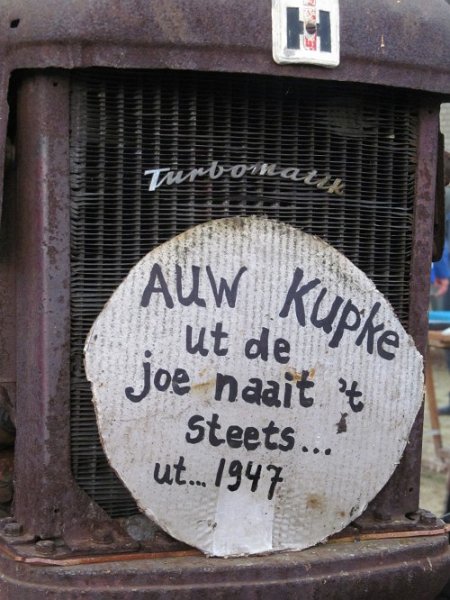 H
Turbomatik
AUW Kupke
ut de
joe naait 't
steets...
ut... 1947